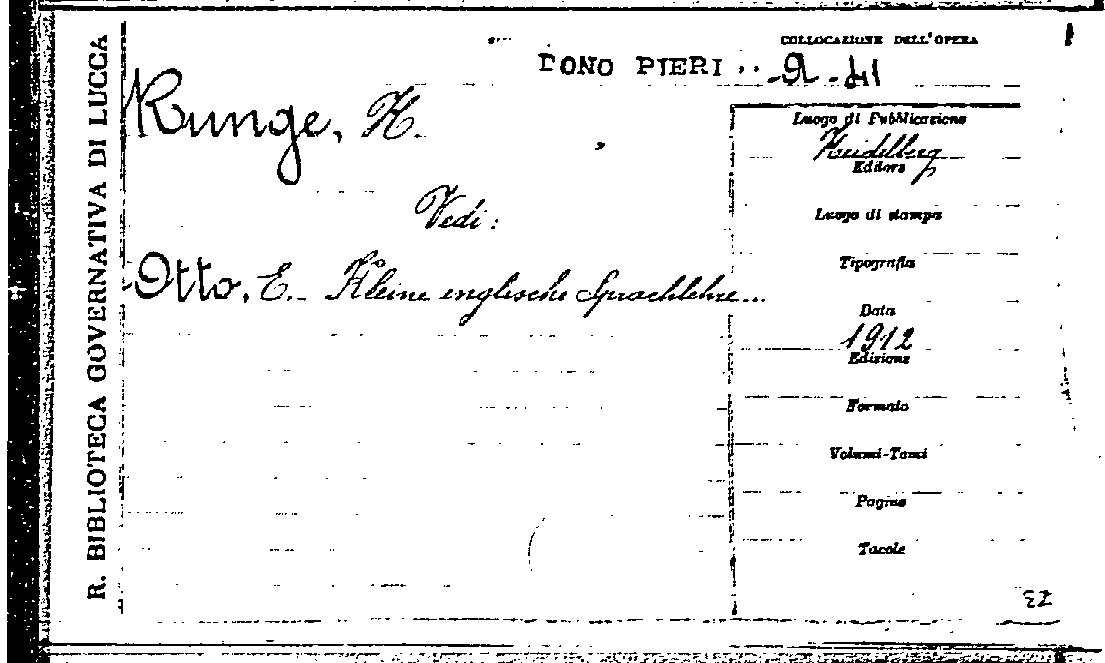 R. BIBLIOTECA GOVERNATIVA DI LUCCA
COLLOCAZIONE DELL'OPERA
DONO PIERI
Runge, H.
Vedi:
Otto, E. Kleine englische Sprachlehre...
Luogo di Pubblicazione
Heidelberg
Editore
Luogo di stampa
Tipografia
Data
1912
Edizione
Formato
Volumi-Tomi
Pagine
Tavole